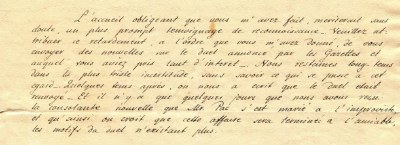 L'accueil obligeant que vous m'avez fait, meriterait sans
doute, un plus prompt temoignage de reconnaissance. Veuillez at-
tribuer ce retardement, à l'ordre que vous m'avez donné, de vous
envoyer des nouvelles sur le duel annoncé par les Gazettes et
auquel vous aviez pris tant d'interet. Nous restâmes long tems
dans la plus triste incertitude, sans savoir ce qui se passe à cet
egard. Quelques tems après, on nous a ecrit que le duel etait
Et il n'y a que quelques jours que nous avons reçu
la consolante nouvelle que Mr s'est marié à l'improviste,
et qu'ainsi on croit que cette affaire sera terminée à l'amiable,
les motifs du duel n'existant plus.